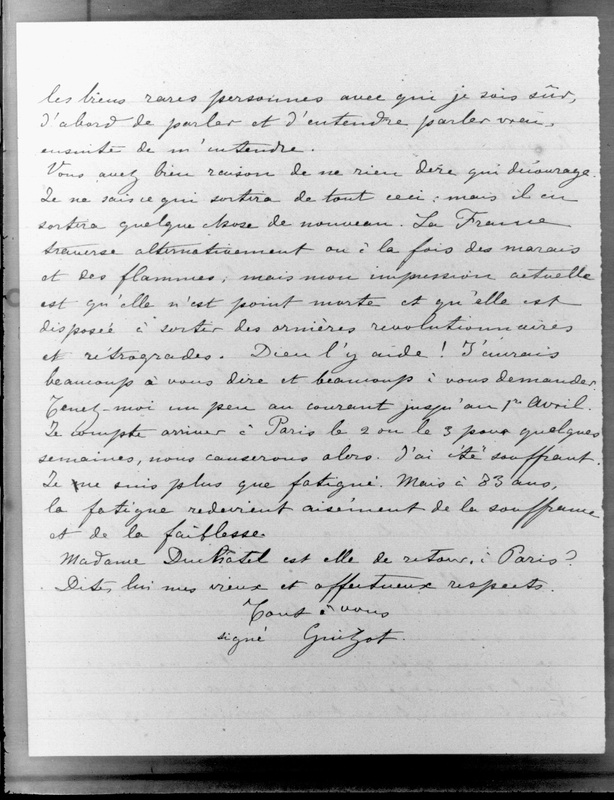 les biens rares personnes avec qui je sois sûr,
d'abord de parler et d'entendre parler vrai,
ensuite de m'entendre.
Vous avez bien raison de ne rien dire qui décourage.
Je ne sais ce qui sortira de tout ceci; mais il en
sortira quelque chose de nouveau. La France
traverse alternativement ou à la fois des marais
et des flammes; mais mon impression actuelle
est qu'elle n'est point morte et qu'elle est
disposée à sortir des ornières revolutionnaires
et rétrogrades. Dieu l'y aide! J'aurais
beaucoup à vous dire et beaucoup à vous demander.
Tenez-moi un peu au courant jusqu'au 1er Avril.
Je compte arriver à Paris le 2 ou le 3 pour quelques
semaines, nous causerons alors. J'ai été souffrant.
Je ne suis plus que fatigué. Mais à 83 ans,
la fatigue redevient aisément de la souffrance
et de la faiblesse.
Madame Duchâtel est elle de retour, à Paris?
Dites lui mes vieux et affectueux respects.
Tout à vous
signé Guizot.